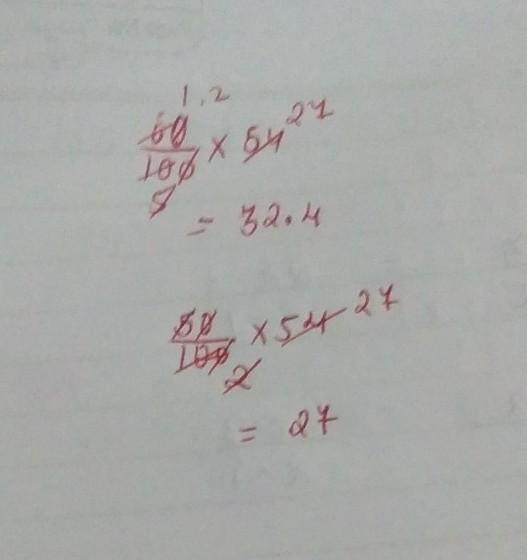 1.2
60/100 × 54 27
5
= 32.4
50/100 × 54 27
2
= 27